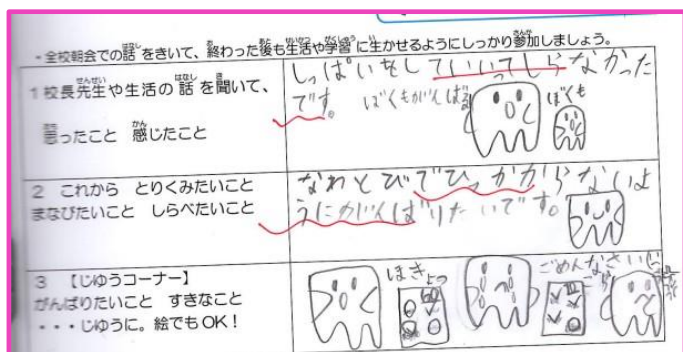 ・全校朝会での話をきいて、終わった後も生活や学習に生かせるようにしっかり参加しましょう。
1 校長先生や生活の話を聞いて、
思ったこと 感じたこと
しっぱいをしていいってしらなかった
です。 ぼくもがんばる ぼくも
2 これから とりくみたいこと
まなびたいこと しらべたいこと
なわとびでひっかからないよ
うにがんばりたいです。
3 【じゆうコーナー】
がんばりたいこと すきなこと
・・・じゆうに。絵でもOK！
ごめんなさい